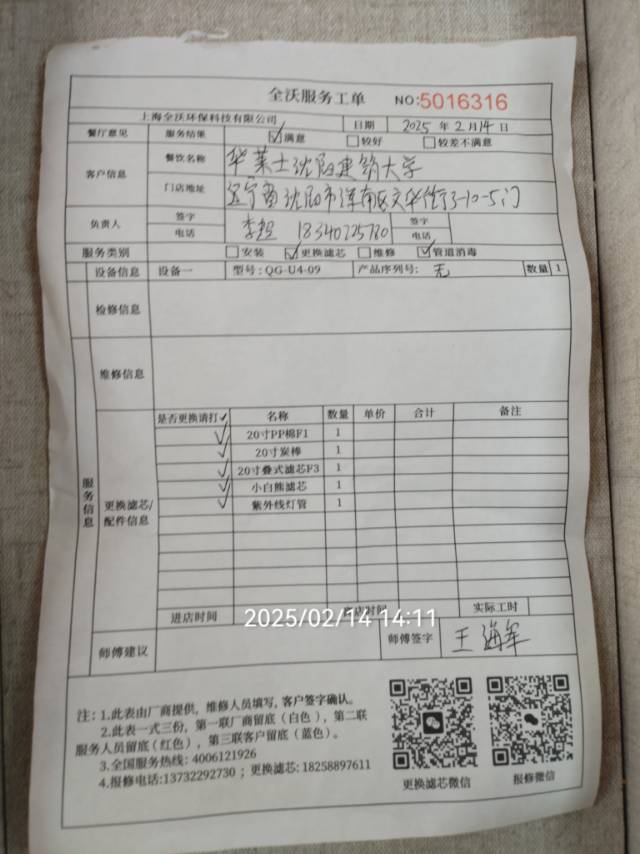 全沃服务工单 NO:5016316
上海全沃环保科技有限公司 日期 2025 年 2 月 14 日
餐厅意见 服务结果 ☑满意 □较好 □较差不满意
客户信息 餐饮名称 华莱士沈阳建筑大学
门店地址 辽宁省沈阳市浑南区文华街73-10-5门
负责人 签字 李超 签字
电话 18340725780 电话
服务类别 □安装 ☑更换滤芯 □维修 ☑管道消毒
设备信息 设备一 型号:QG-U4-09 产品序列号: 无 数量 1
检修信息
维修信息
服务信息
更换滤芯/配件信息
是否更换请打✓ 名称 数量 单价 合计 备注
✓ 20寸PP棉F1 1
✓ 20寸炭棒 1
✓ 20寸叠式滤芯F3 1
✓ 小白熊滤芯 1
✓ 紫外线灯管 1
进店时间 离店时间 实际工时
2025/02/14 14:11
师傅建议 师傅签字 王海军
注:1.此表由厂商提供,维修人员填写,客户签字确认。
2.此表一式三份,第一联厂商留底(白色),第二联
服务人员留底(红色),第三联客户留底(蓝色)。
3.全国服务热线:4006121926
4.报修电话:13732292730;更换滤芯:18258897611
更换滤芯微信 报修微信